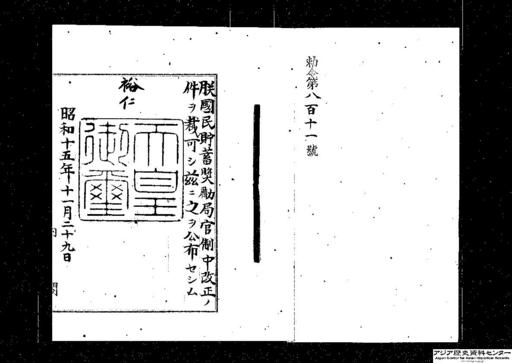 勅令第八百十一號
朕國民貯蓄奬勵局官制中改正ノ
件ヲ裁可シ茲ニ之ヲ公布セシム
裕仁
天皇御璽
昭和十五年十一月二十九日
内 閣
アジア歴史資料センター
Japan Center for Asian Historical Records